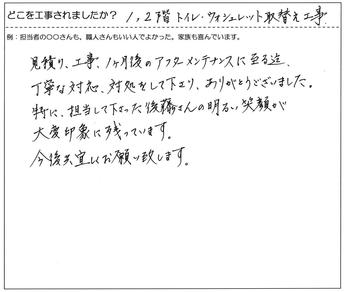 どこを工事されましたか? 1,2階トイレ・ウォシュレット取替え工事
例:担当者の〇〇さんも、職人さんもいい人でよかった。家族も喜んでいます。
見積り、工事、1ヶ月後のアフターメンテナンスに至る迄、
丁寧な対応、対処をして下さり、ありがとうございました。
特に、担当して下さった後藤さんの明るい笑顔が
大変印象に残っています。
今後共宜しくお願い致します。